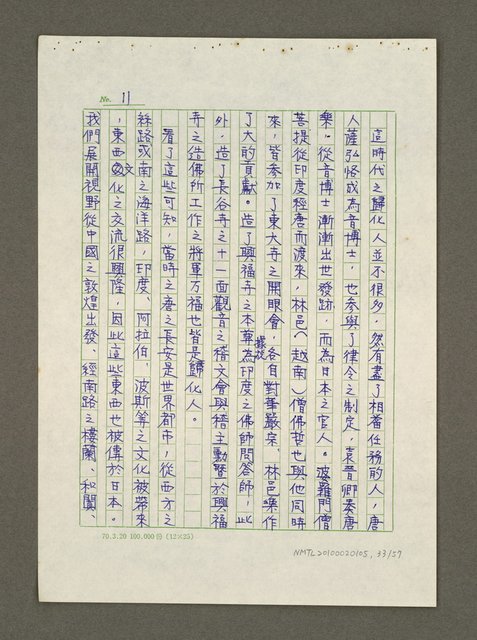 No. 11
這時代之歸化人並不很多，然有盡了相當任務的人，唐
人薩弘恪成為音博士，也參與了律令之制定，袁晉卿奏唐
樂，從音博士漸漸出世發跡，而為日本之官人。婆羅門僧
菩提從印度經唐而渡來，林邑（越南）僧佛哲也與他同時
來，皆參加了東大寺之開眼會，各自對華嚴宗、林邑樂作
了大的貢獻。造了興福寺之本尊為據說印度之佛師問答師，此
外，造了長谷寺之十一面觀音之稽文會與稽主勳暨於興福
寺之造佛所工作之將軍万福也皆是歸化人。
看了這些可知，當時之唐之長安是世界都市，從西方之
絲路或南之海洋路，印度、阿拉伯、波斯等之文化被帶來
，東西文化之交流很興隆，因此這些東西也被傳於日本。
我們展開視野從中國之敦煌出發、經南路之樓蘭、和闐、
70.3.20 100.000份（12×25）
NMTL20100020105, 33/59